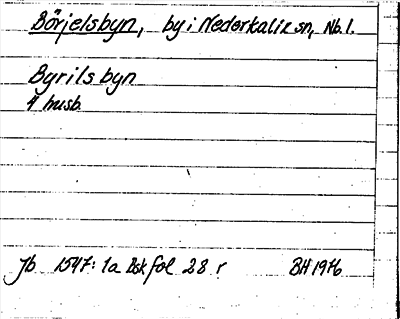 Börjelsbyn, by i Nederkalix sn, Nb. l.
Byrilsbyn
4 husb.
Jb 1547: 1a Bsk fol 28 r BH 1976